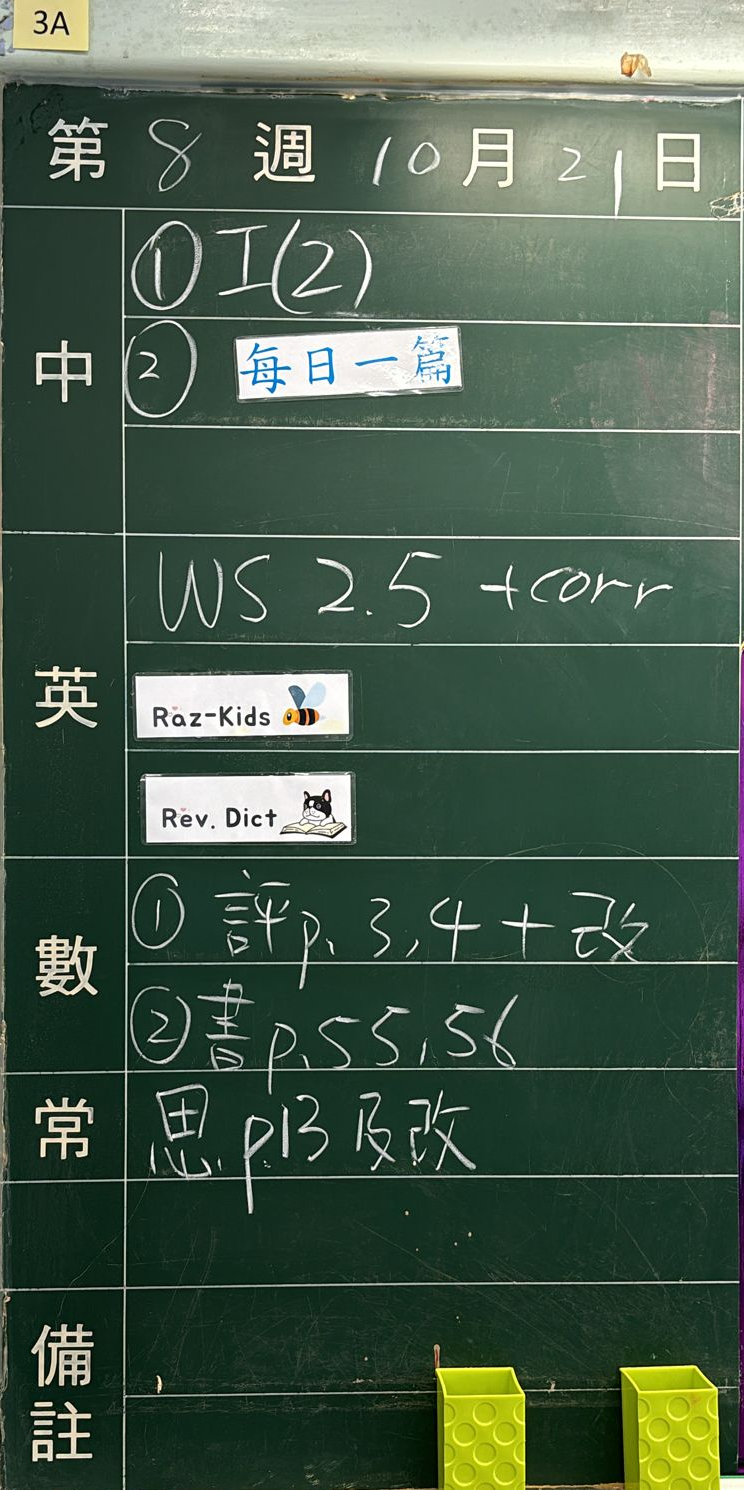 3A
第 8 週 10 月 21 日
中
① I(2)
② 每日一篇
英
WS 2.5 +corr
Raz-Kids
Rev. Dict
數
① 評p. 3,4 + 改
② 書p.55,56
常
思 p.13 及改
備註